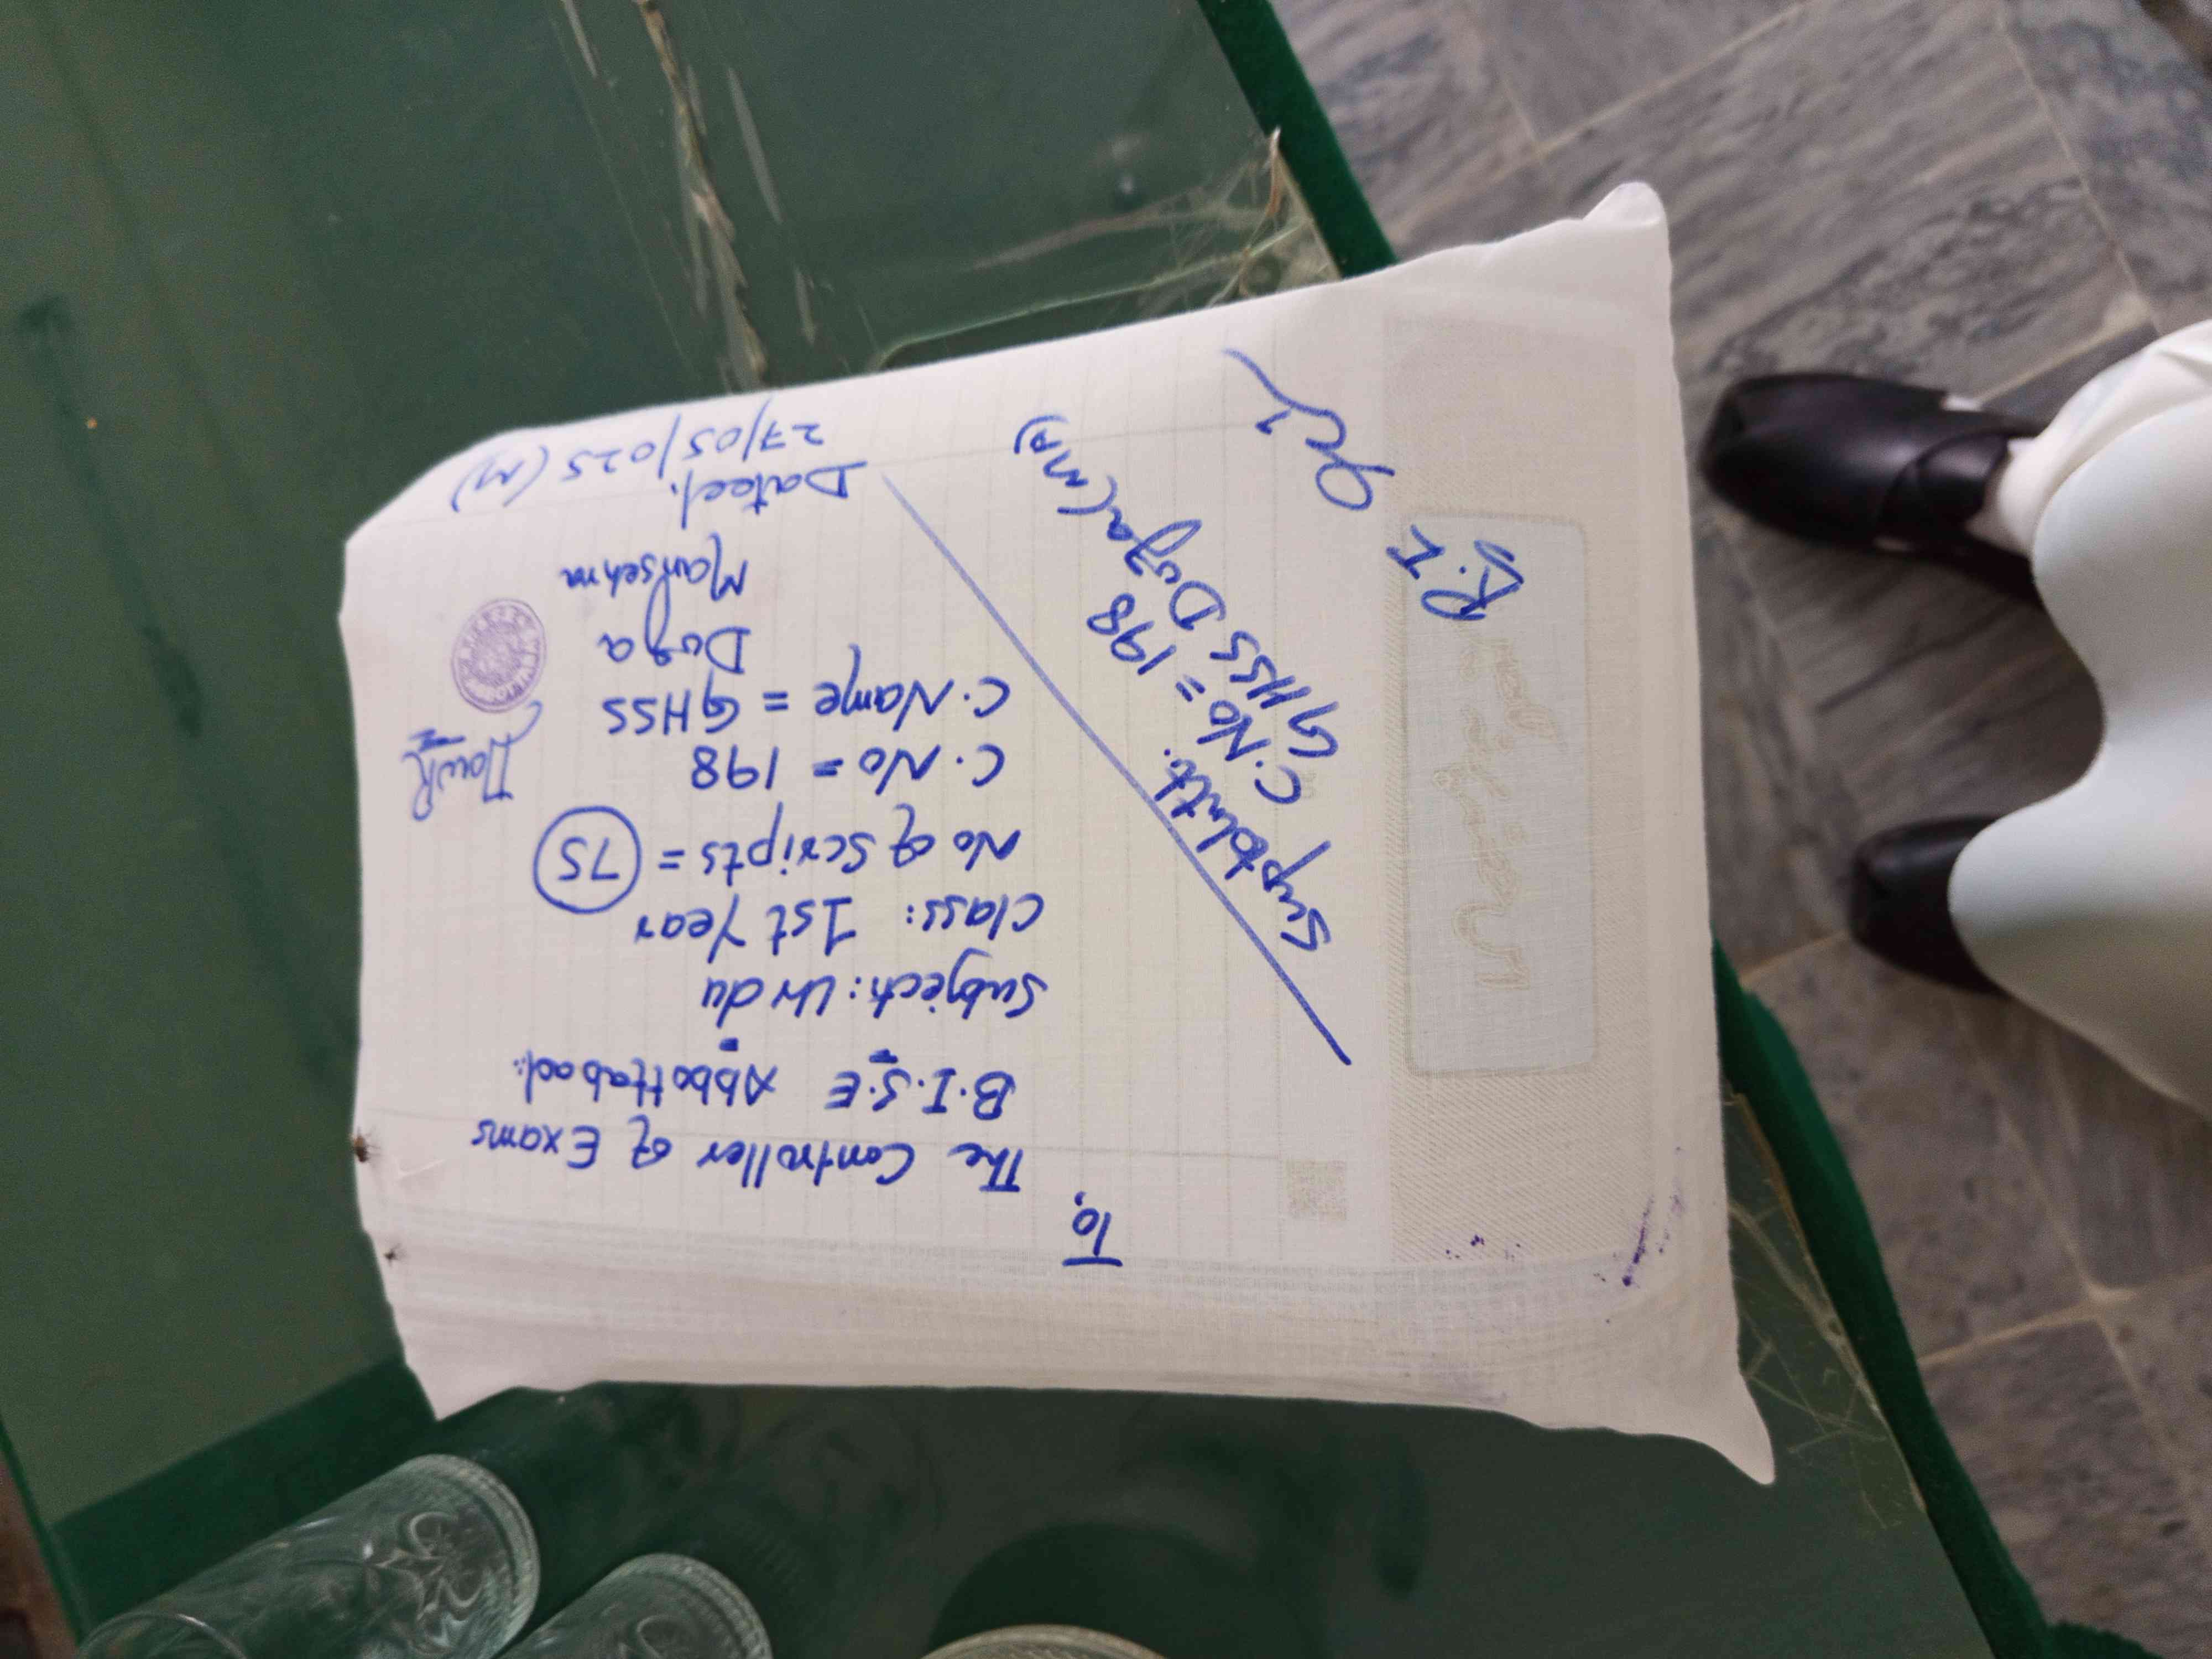 To,
The Controller of Exams
B.I.S.E Abbottabad.
Subject: Urdu
Class: 1st Year
No of Scripts = 75
C. No = 198
C. Name = GHSS
Duga
Mansehra
Dated.
27/05/025 (M)
Suptdntt.
C. No = 198
GHSS Duga (MA)
R.I